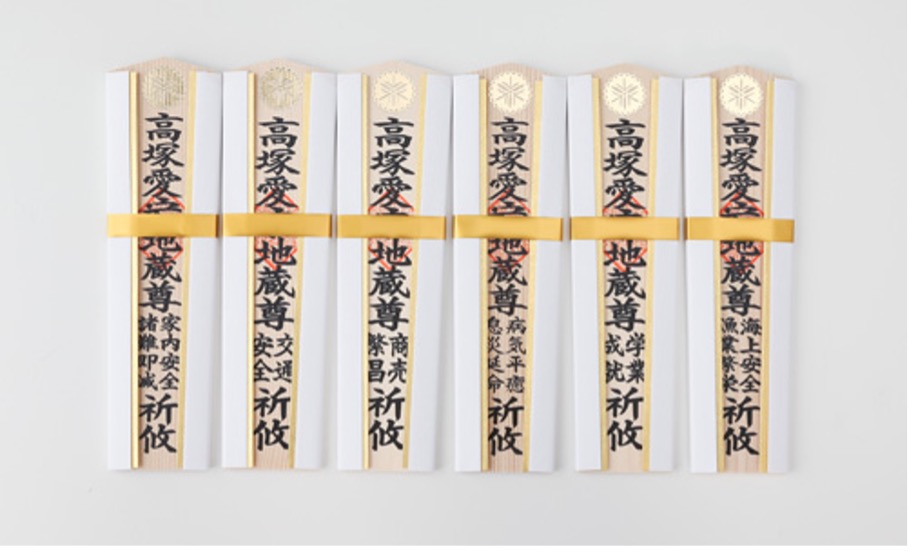 高塚愛宕地蔵尊
家内安全
諸難即滅
祈攸
高塚愛宕地蔵尊
交通
安全
祈攸
高塚愛宕地蔵尊
商売
繁昌
祈攸
高塚愛宕地蔵尊
病気平癒
息災延命
祈攸
高塚愛宕地蔵尊
学業
成就
祈攸
高塚愛宕地蔵尊
海上安全
漁業繁栄
祈攸